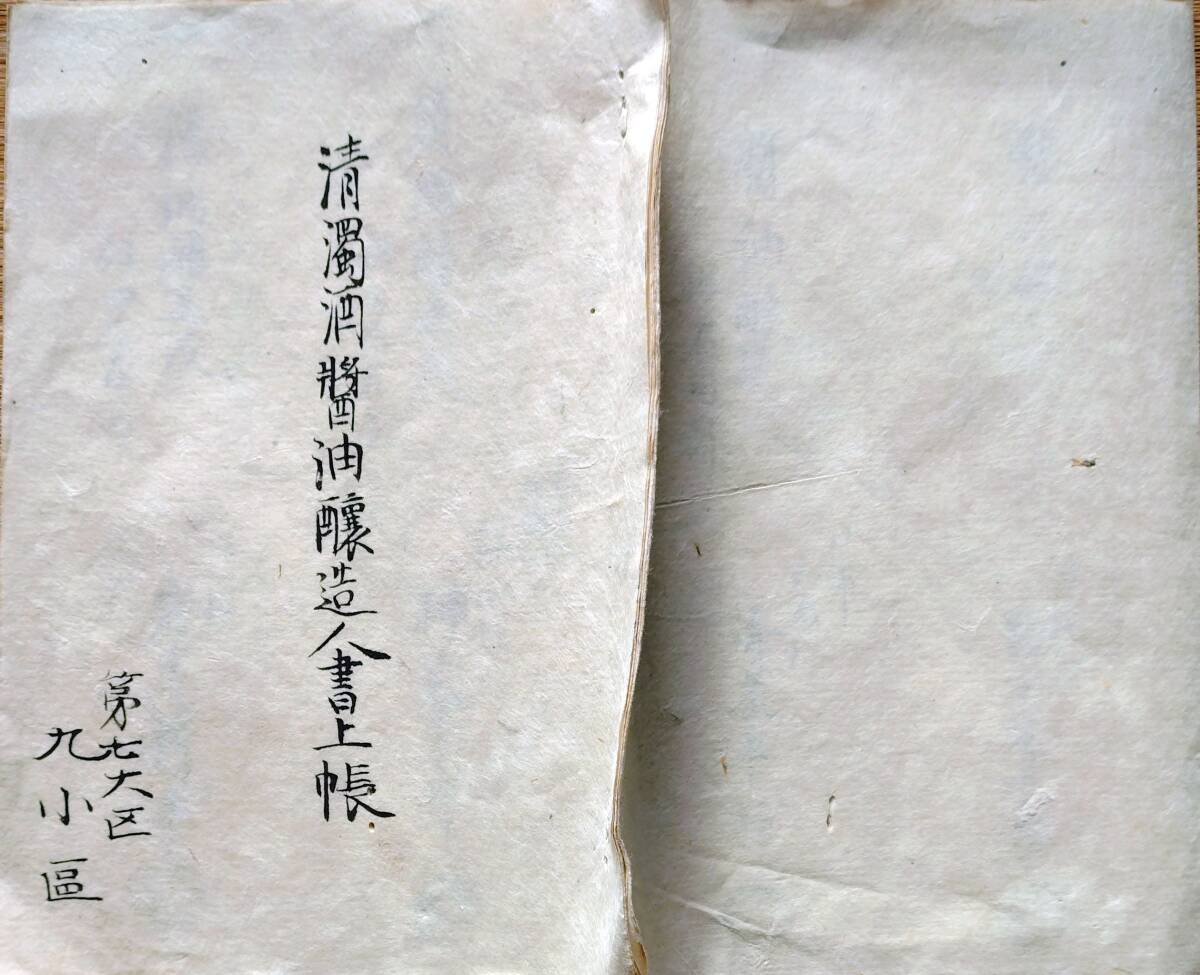 清濁酒醬油釀造人書上帳
第七大区
九小區